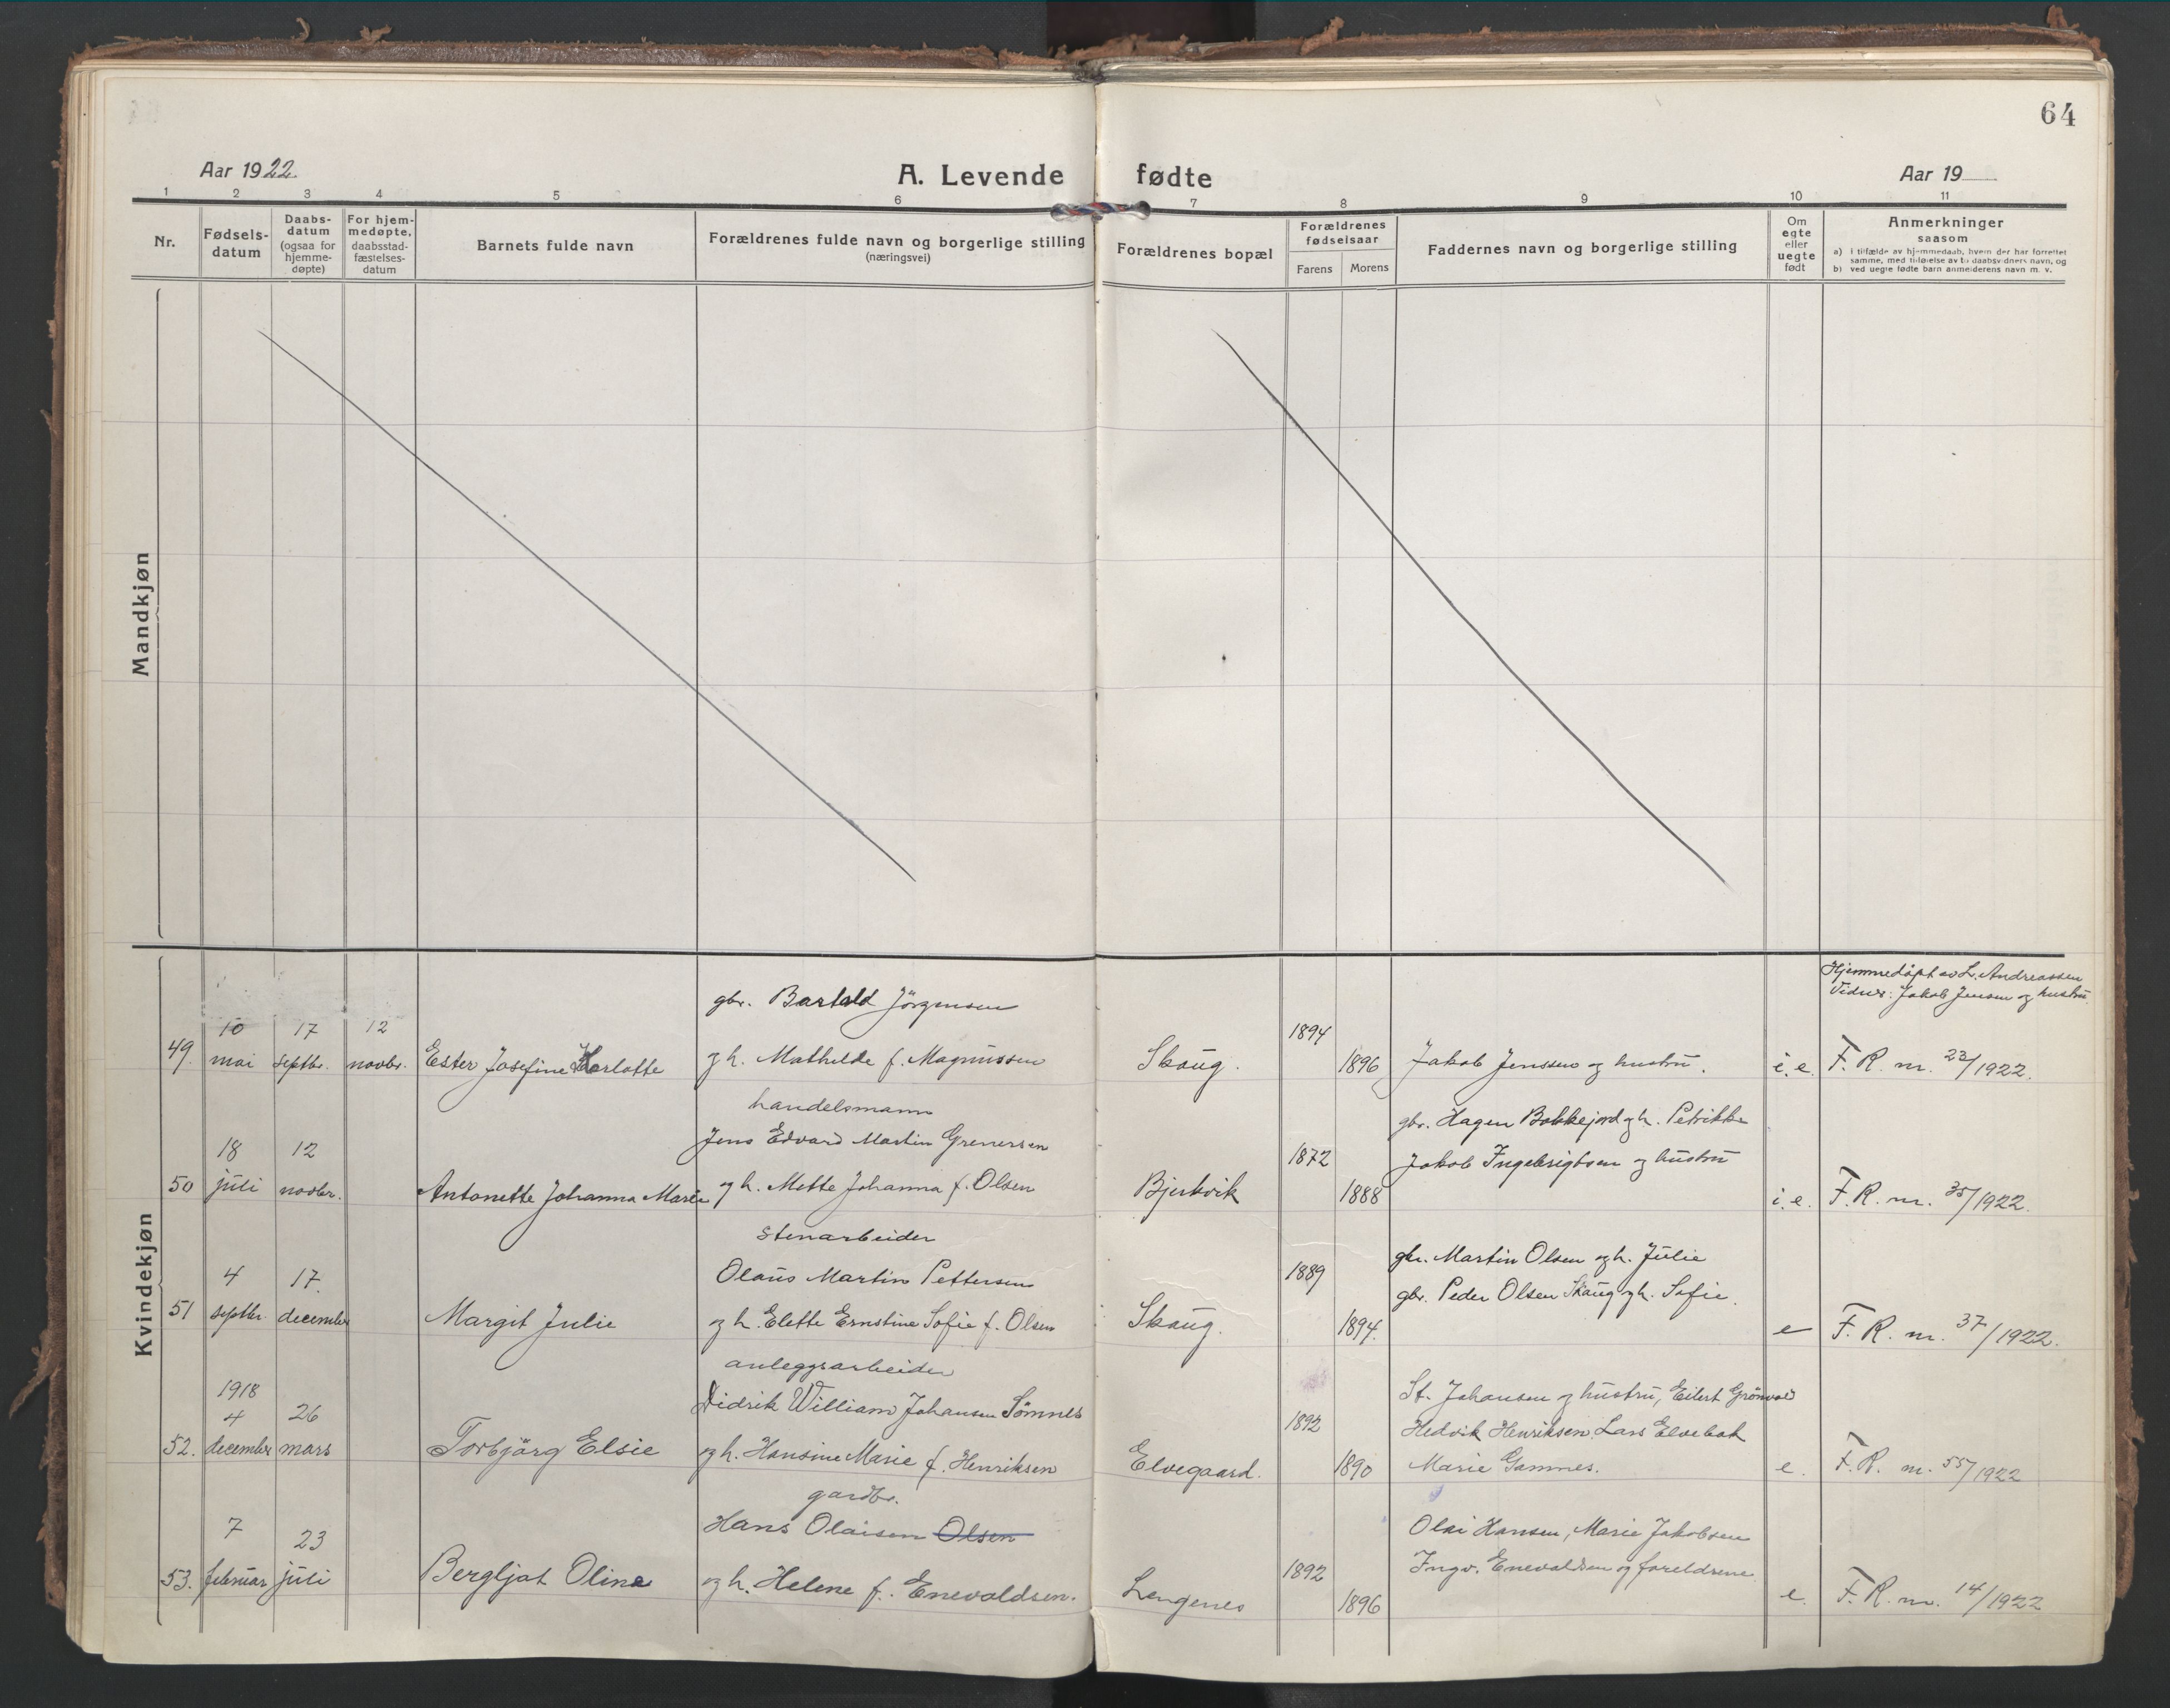 64
Aar 1922
A. Levende fødte
Aar 19
1 2 3 4 5 6 7 8 9 10 11
Nr.
Fødsels-
datum
Daabs-
datum
(ogsaa for
hjemme-
døpte)
For hjem-
medøpte,
daabsstad-
fæstelses-
datum
Barnets fulde navn
Forældrenes fulde navn og borgerlige stilling
(næringsvei)
Forældrenes bopæl
Forældrenes
fødselsaar
Farens Morens
Faddernes navn og borgerlige stilling
Om
egte
eller
uegte
født
Anmerkninger
saasom
a) i tilfælde av hjemmedaab, hvem der har forrettet
samme, med tilføielse av to daabsvidners navn, og
b) ved uegte fødte barn anmelderens navn m. v.
Mandkjøn
Kvindekjøn
49.
10
mai
17
septbr.
12
novbr.
Ester Josefine Karlotte
gbr. Bartold Jörgensen
og h. Mathilde f. Magnussen
Skoug.
1894
1896
Jakob Jenssen og hustru.
i. e.
Hjemmedöpt av L. Andreassen
Vidner: Jakob Jensen og hustru.
F. R. nr. 23/1922.
50
18
juli
12
novbr.
Antonette Johanna Marie
handelsmann
Jens Edvard Martin Grenersen
og h. Mette Johanna f. Olsen
Bjerkvik
1872
1888
gbr. Hagen Bokkejord og h. Petrikke
Jakob Ingebrigtsen og hustru
i. e.
F. R. nr. 35/1922.
51
4
septbr.
17.
december
Margit Julie
Stenarbeider
Olaus Martin Pettersen
og h. Elette Ernstine Sofie f. Olsen
Skoug.
1889
1894.
gbr. Martin Olsen og h. Julie
gbr. Peder Olsen Skaug og h. Sofie.
e
F. R. nr. 37/1922.
52.
1918
4
december
26
mars
Torbjörg Elsie
anleggsarbeider
Didrik William Johansen Sömnes
og h. Hansine Marie f. Henriksen
Elvegaard.
1892
1890
St. Johansen og hustru, Eilert Grönvold
Hedvik Henriksen, Lars Elvebak
Marie Gamnes.
e.
F. R. nr. 55/1922
53.
7
februar
23
juli
Bergljot Oline
gardbr.
Hans Olaisen Olsen
og h. Helene f. Enevoldsen.
Lengenes
1892
1896
Olai Hansen, Marie Jakobsen
Ingv. Enevoldsen og foreldrene
e.
F. R. nr. 14/1922